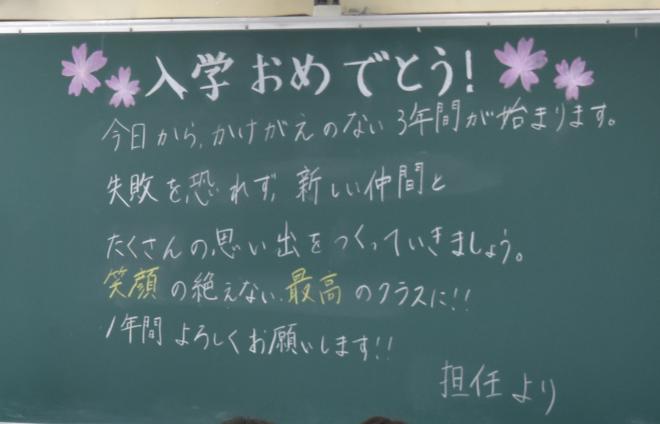 入学おめでとう!
今日から、かけがえのない3年間が始まります。
失敗を恐れず、新しい仲間と
たくさんの思い出をつくっていきましょう。
笑顔の絶えない最高のクラスに!!
1年間よろしくお願いします!!
担任より